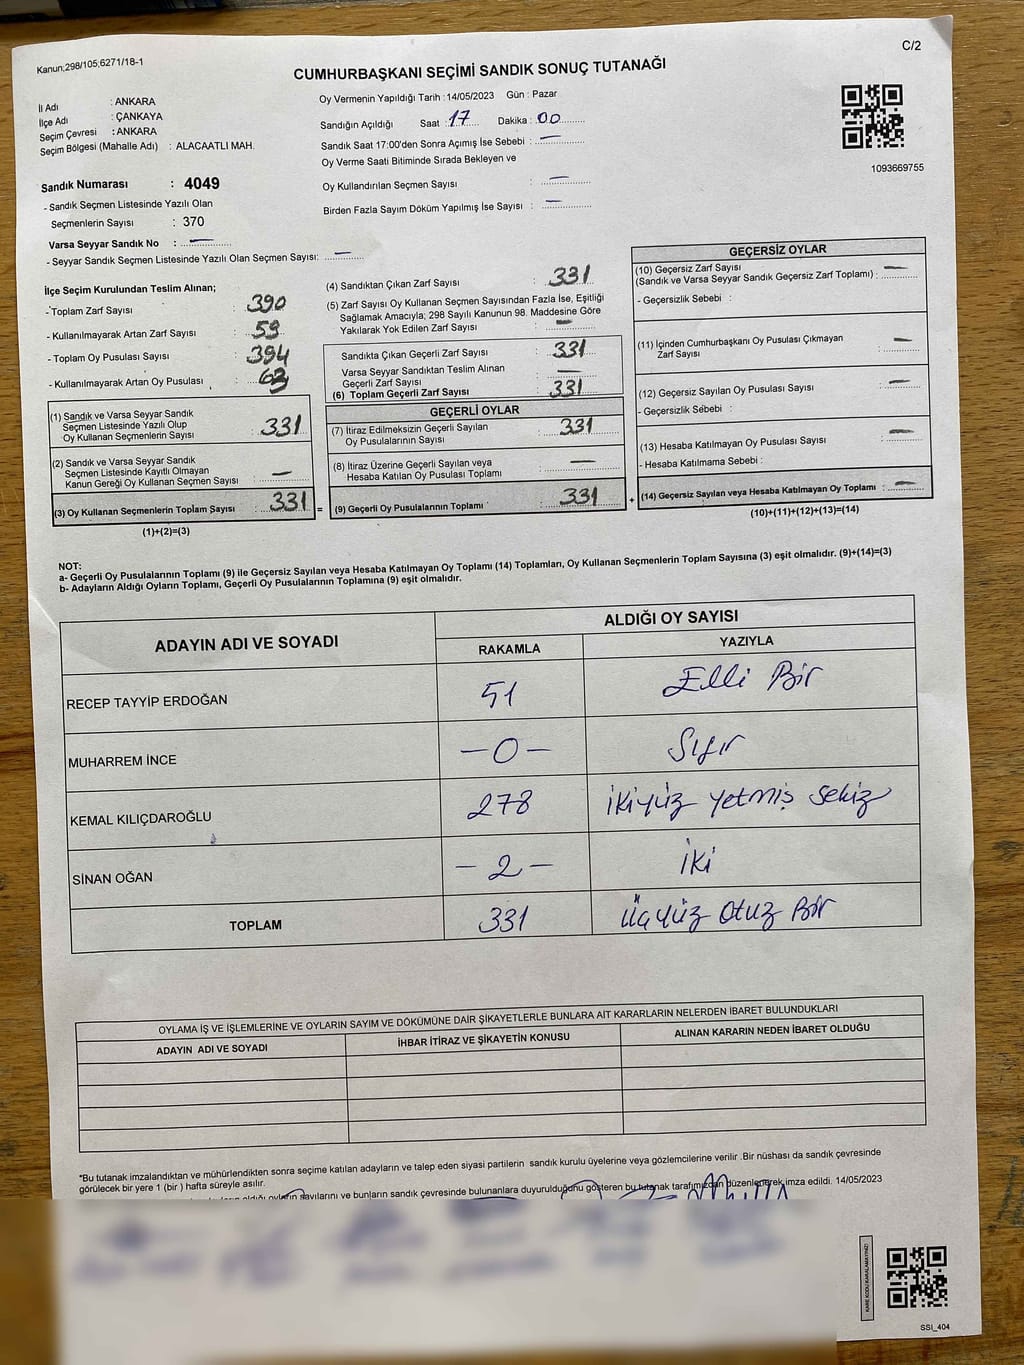 Kanun;298/105;6271/18-1
C/2
CUMHURBAŞKANI SEÇİMİ SANDIK SONUÇ TUTANAĞI
İl Adı : ANKARA
İlçe Adı : ÇANKAYA
Seçim Çevresi : ANKARA
Seçim Bölgesi (Mahalle Adı) : ALACAATLI MAH.
Sandık Numarası : 4049
- Sandık Seçmen Listesinde Yazılı Olan
Seçmenlerin Sayısı : 370
Varsa Seyyar Sandık No : —
- Seyyar Sandık Seçmen Listesinde Yazılı Olan Seçmen Sayısı: —
Oy Vermenin Yapıldığı Tarih : 14/05/2023 Gün : Pazar
Sandığın Açıldığı Saat : 17 Dakika : 00
Sandık Saat 17:00'den Sonra Açımış İse Sebebi : —
Oy Verme Saati Bitiminde Sırada Bekleyen ve
Oy Kullandırılan Seçmen Sayısı : —
Birden Fazla Sayım Döküm Yapılmış İse Sayısı : —
1093669755
İlçe Seçim Kurulundan Teslim Alınan;
- Toplam Zarf Sayısı : 390
- Kullanılmayarak Artan Zarf Sayısı : 59
- Toplam Oy Pusulası Sayısı : 394
- Kullanılmayarak Artan Oy Pusulası : 63
(1) Sandık ve Varsa Seyyar Sandık
Seçmen Listesinde Yazılı Olup
Oy Kullanan Seçmenlerin Sayısı : 331
(2) Sandık ve Varsa Seyyar Sandık
Seçmen Listesinde Kayıtlı Olmayan
Kanun Gereği Oy Kullanan Seçmen Sayısı : —
(3) Oy Kullanan Seçmenlerin Toplam Sayısı : 331 =
(1)+(2)=(3)
(4) Sandıktan Çıkan Zarf Sayısı : 331
(5) Zarf Sayısı Oy Kullanan Seçmen Sayısından Fazla İse, Eşitliği
Sağlamak Amacıyla; 298 Sayılı Kanunun 98. Maddesine Göre
Yakılarak Yok Edilen Zarf Sayısı : —
Sandıkta Çıkan Geçerli Zarf Sayısı : 331
Varsa Seyyar Sandıktan Teslim Alınan
Geçerli Zarf Sayısı : —
(6) Toplam Geçerli Zarf Sayısı : 331
GEÇERLİ OYLAR
(7) İtiraz Edilmeksizin Geçerli Sayılan
Oy Pusulalarının Sayısı : 331
(8) İtiraz Üzerine Geçerli Sayılan veya
Hesaba Katılan Oy Pusulası Toplamı : —
(9) Geçerli Oy Pusulalarının Toplamı : 331 +
GEÇERSİZ OYLAR
(10) Geçersiz Zarf Sayısı
(Sandık ve Varsa Seyyar Sandık Geçersiz Zarf Toplamı) : —
- Geçersizlik Sebebi :
(11) İçinden Cumhurbaşkanı Oy Pusulası Çıkmayan
Zarf Sayısı : —
(12) Geçersiz Sayılan Oy Pusulası Sayısı : —
- Geçersizlik Sebebi :
(13) Hesaba Katılmayan Oy Pusulası Sayısı : —
- Hesaba Katılmama Sebebi :
(14) Geçersiz Sayılan veya Hesaba Katılmayan Oy Toplamı : —
(10)+(11)+(12)+(13)=(14)
NOT:
a- Geçerli Oy Pusulalarının Toplamı (9) ile Geçersiz Sayılan veya Hesaba Katılmayan Oy Toplamı (14) Toplamları, Oy Kullanan Seçmenlerin Toplam Sayısına (3) eşit olmalıdır. (9)+(14)=(3)
b- Adayların Aldığı Oyların Toplamı, Geçerli Oy Pusulalarının Toplamına (9) eşit olmalıdır.
ADAYIN ADI VE SOYADI ALDIĞI OY SAYISI
RAKAMLA YAZIYLA
RECEP TAYYİP ERDOĞAN 51 Elli Bir
MUHARREM İNCE —0— Sıfır
KEMAL KILIÇDAROĞLU 278 ikiyüz yetmiş sekiz
SİNAN OĞAN —2— iki
TOPLAM 331 üçyüz otuz Bir
OYLAMA İŞ VE İŞLEMLERİNE VE OYLARIN SAYIM VE DÖKÜMÜNE DAİR ŞİKAYETLERLE BUNLARA AİT KARARLARIN NELERDEN İBARET BULUNDUKLARI
ADAYIN ADI VE SOYADI İHBAR İTİRAZ VE ŞİKAYETİN KONUSU ALINAN KARARIN NEDEN İBARET OLDUĞU
*Bu tutanak imzalandıktan ve mühürlendikten sonra seçime katılan adayların ve talep eden siyasi partilerin sandık kurulu üyelerine veya gözlemcilerine verilir. Bir nüshası da sandık çevresinde
görülecek bir yere 1 (bir) hafta süreyle asılır.
aldığı oyların sayılarını ve bunların sandık çevresinde bulunanlara duyurulduğunu gösteren bu tutanak tarafımızdan düzenlenerek imza edildi. 14/05/2023
SSI_404